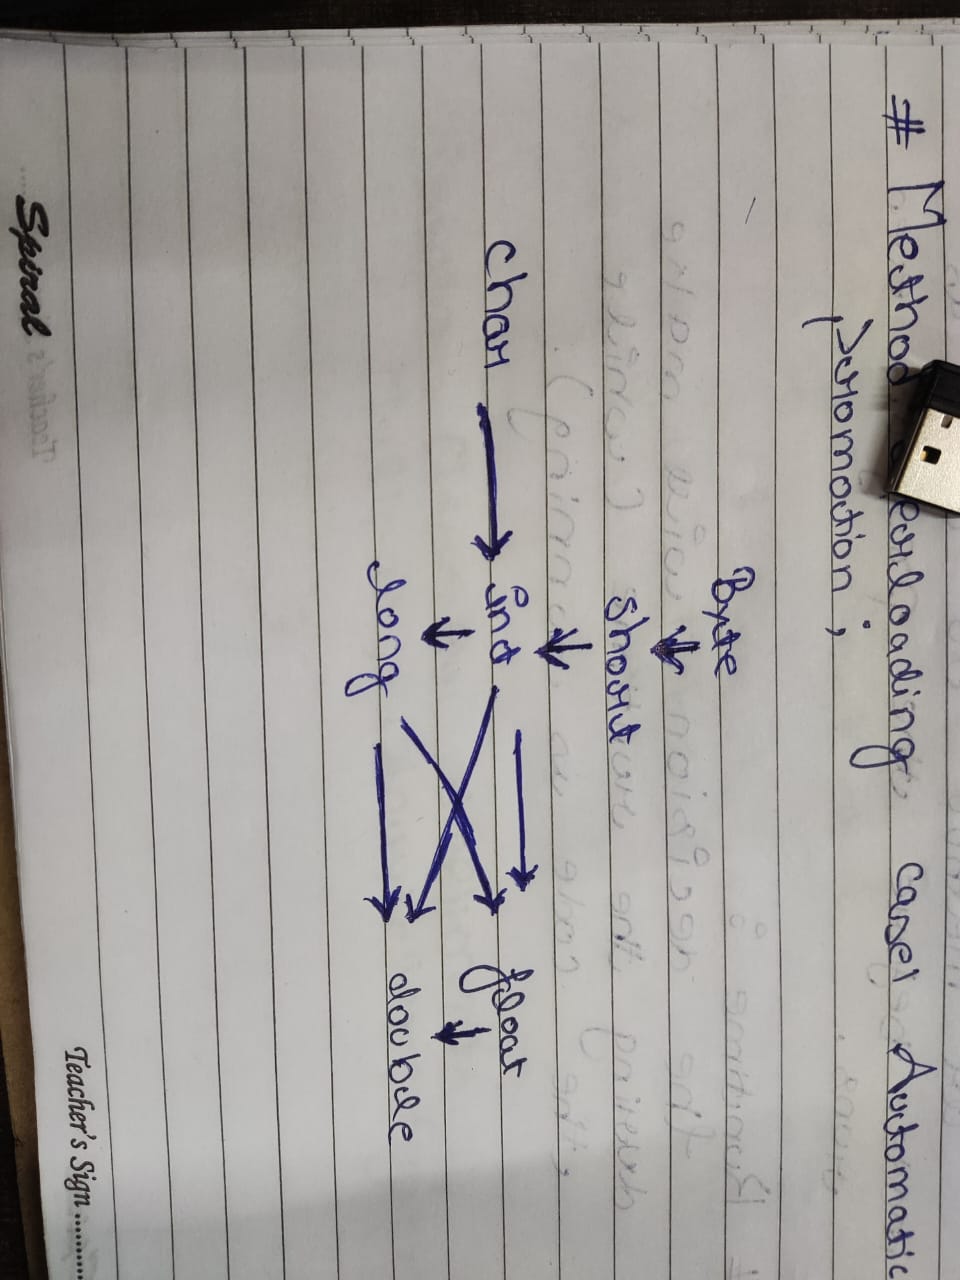 # Method eorloading, case1 Automatic
poromotion ;
Byte
short
char int float
long double
Spiral Teacher's Sign ..........